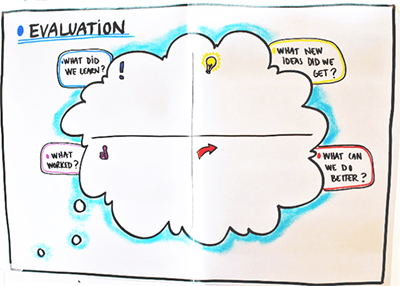 EVALUATION
WHAT DID
WE LEARN?
!
WHAT NEW
IDEAS DID WE
GET?
WHAT
WORKED?
WHAT CAN
WE DO
BETTER?